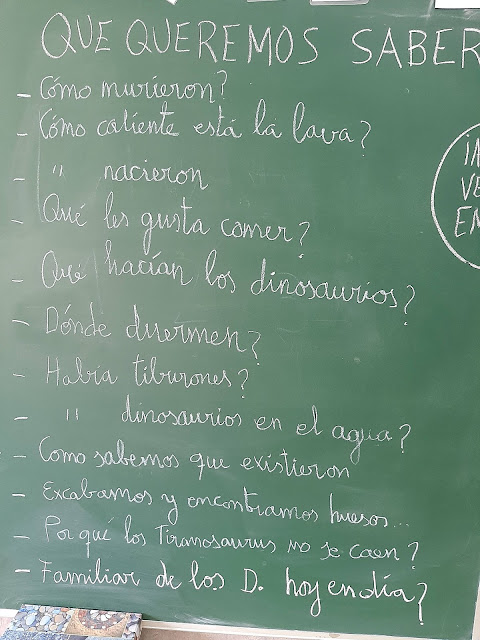 QUE QUEREMOS SABER
- Cómo murieron?
- Cómo caliente está la lava?
- " nacieron
- Qué les gusta comer?
- Qué hacían los dinosaurios?
- Dónde duermen?
- Habia tiburones?
- " dinosaurios en el agua?
- Como sabemos que existieron
- Excabamos y encontramos huesos...
- Por qué los Tiranosaurus no se caen?
- Familiar de los D. hoy en día?